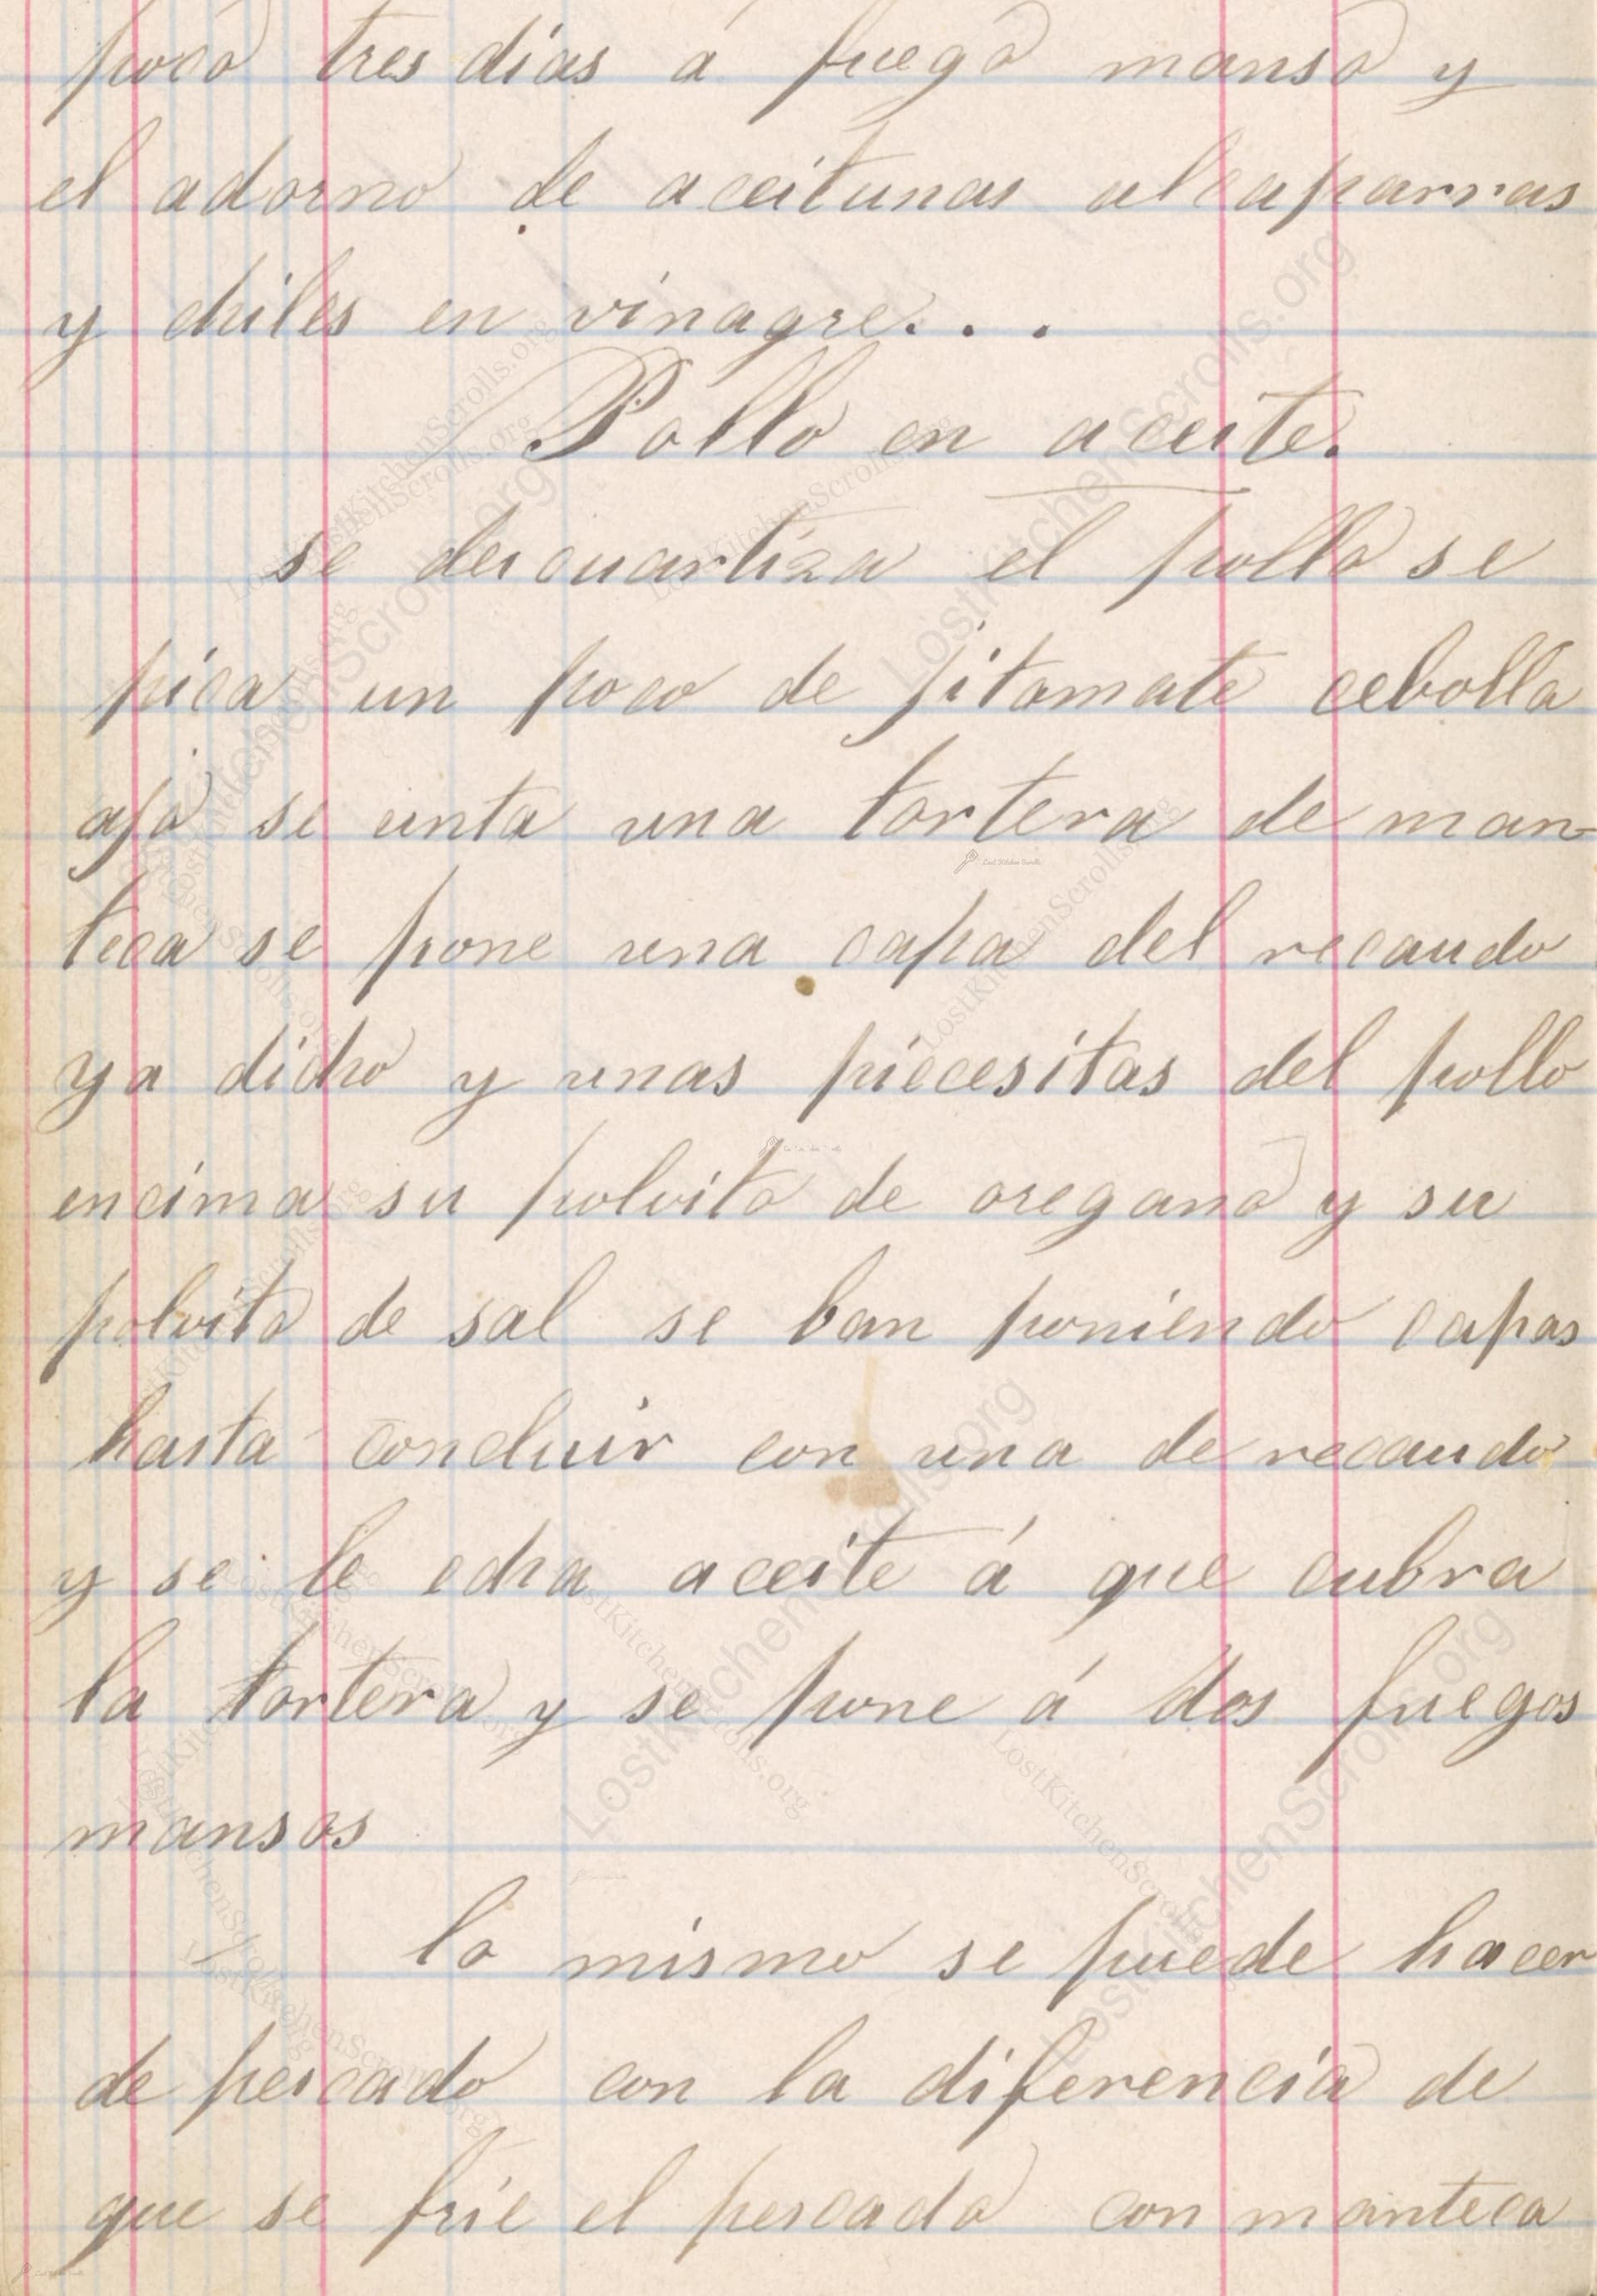 poco tres dias á fuego manso y
el adorno de aceitunas alcaparras
y chiles en vinagre. . .
Pollo en aceite.
se descuartiza el pollo se
pica un poco de jitomate cebolla
ajo se unta una tortera de man-
teca se pone una capa del recaudo
ya dicho y unas piecesitas del pollo
encima su polvito de oregano y su
polvito de sal se ban poniendo capas
hasta concluir con una de recaudo
y se le echa aceite á que cubra
la tortera y se pone á dos fuegos
mansos
lo mismo se puede hacer
de pescado con la diferencia de
que se frie el pescado con manteca